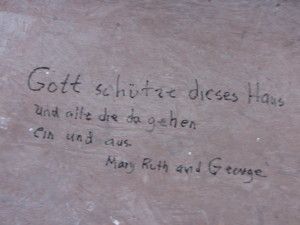 Gott schütze dieses Haus
und alle die da gehen
ein und aus.
Mary Ruth and George